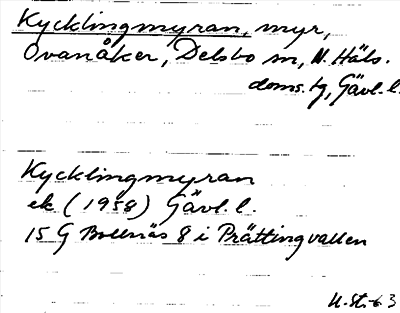 Kycklingmyran, myr,
Ovanåker, Delsbo sn, N. Häls.
doms. tg, Gävl. l.
Kycklingmyran
ek (1958) Gävl. l.
15 G Bollnäs 8 i Prättingvallen
U. St. 63